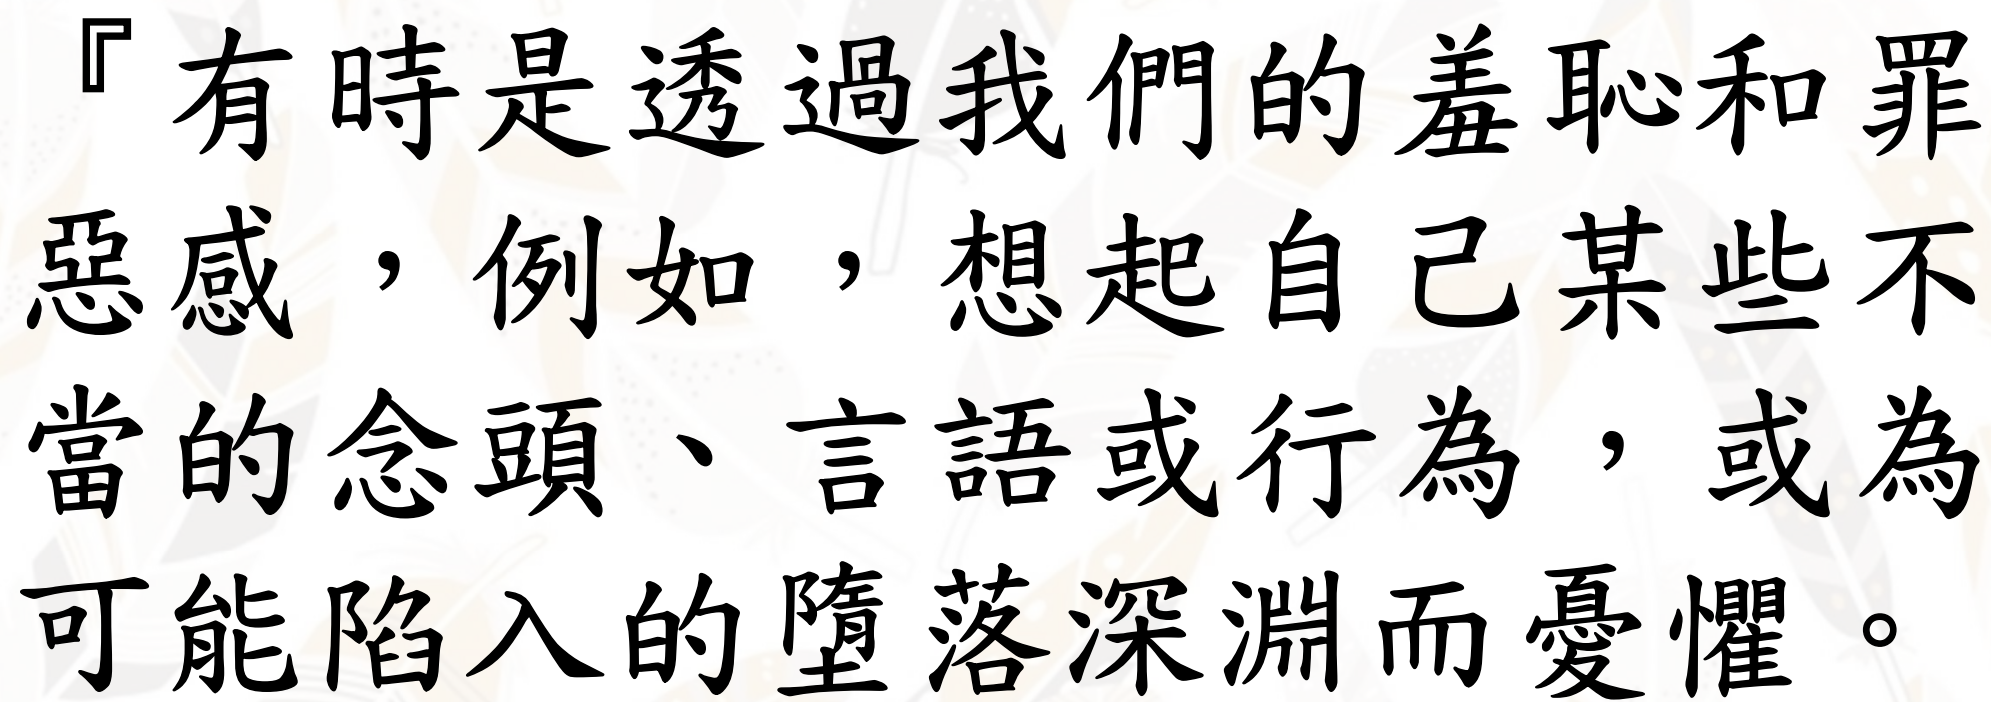 『有時是透過我們的羞恥和罪
惡感，例如，想起自己某些不
當的念頭、言語或行為，或為
可能陷入的墮落深淵而憂懼。